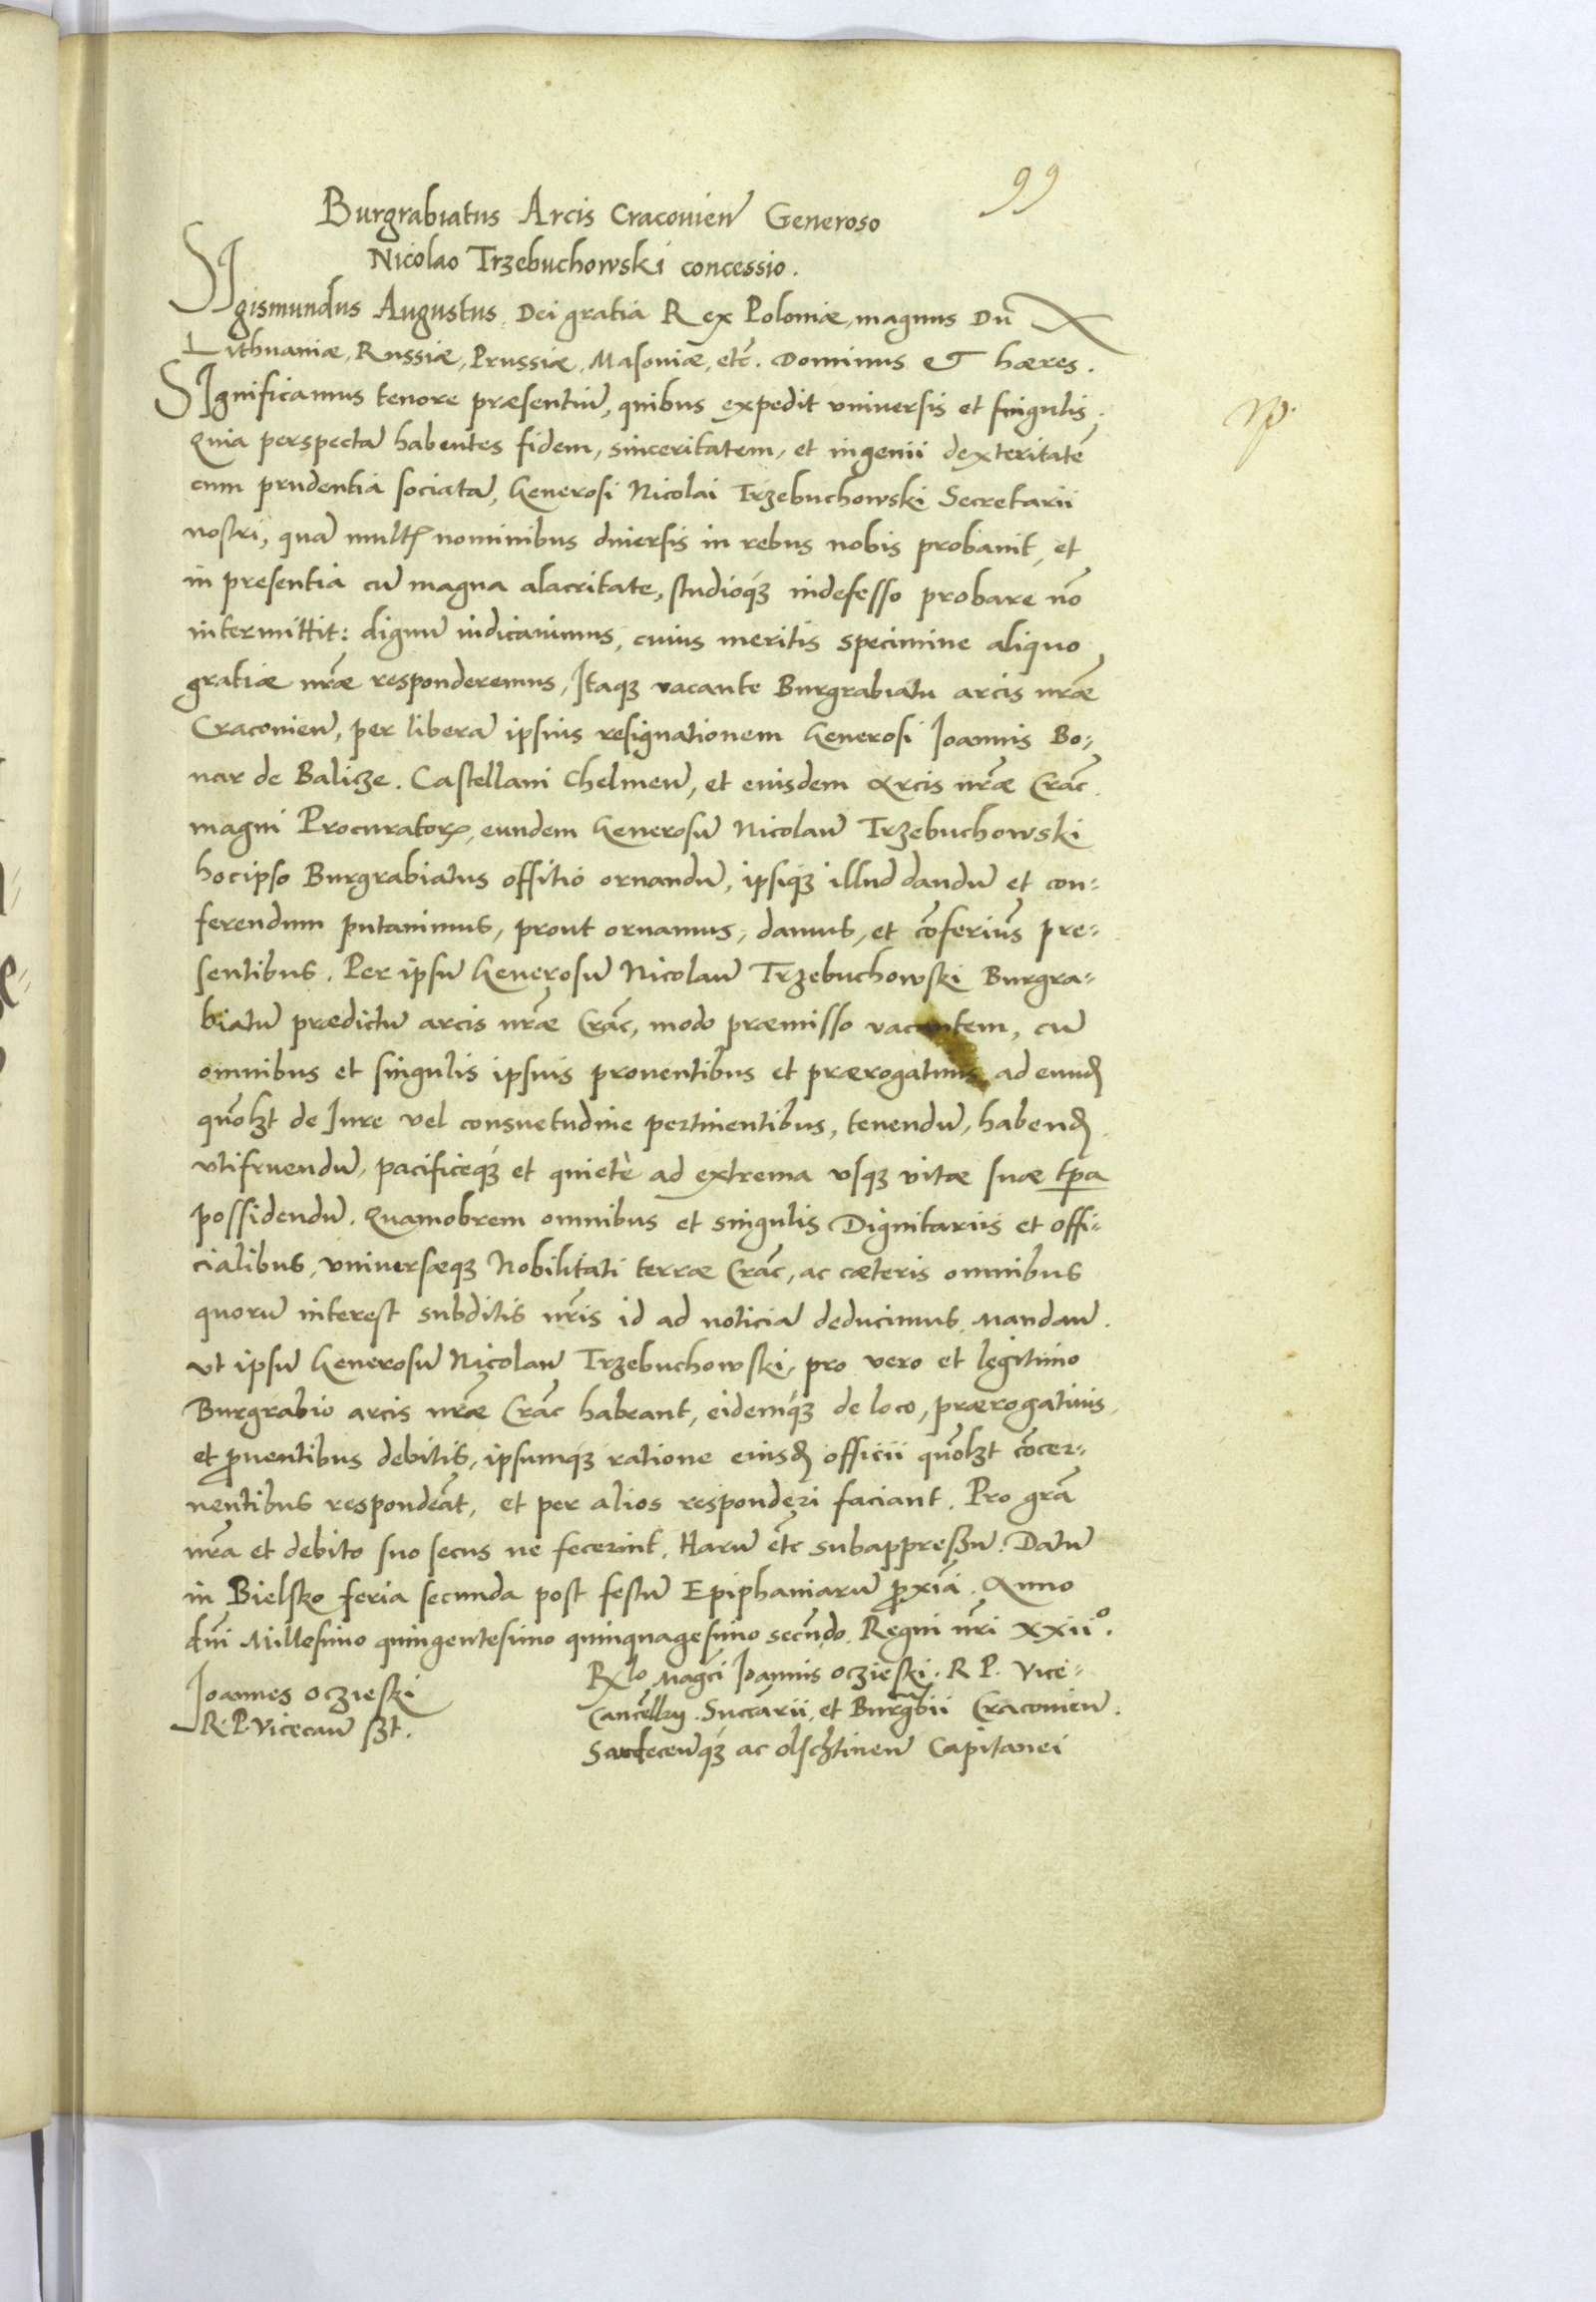 99
Burgrabiatus Arcis Cracovień Generoso
Nicolao Trzebuchowski concessio.
SIgismundus Augustus Dei gratia Rex Poloniæ, magnus Dux
Lithuaniæ, Russiæ, Prussiæ, Masoviæ, etc̃. Dominus et hæres.
SIgnificamus tenore præsentiū, quibus expedit vniversis et singulis.
np.
Quia perspectā habentes fidem, sinceritatem, et ingenii dexteritatē
cum prudentia sociatā, Generosi Nicolai Trzebuchowski Secretarii
nostri, quā multꝭ nominibus diuersis in rebus nobis probauit, et
in presentia cū magna alacritate, studioq́ꝫ indefesso probare nō
intermittit: dignū iudicauimus, cuius meritis specimine aliquo
gratiæ nr̃æ responderemus, Itaqꝫ vacante Burgrabiatu arcis nr̃æ
Cracouień, per liberā ipsius resignationem Generosi Joannis Bo-
nar de Balicze. Castellani Chelmeń, et eiusdem Arcis nr̃æ Crac̃.
magni Procuratorꝭ, eundem Generosū Nicolaū Trzebuchowski
hocipso Burgrabiatus offitio ornandū, ipsiq́ꝫ illud dandū et con-
ferendum putauimus, prout ornamus, damus, et cōferimus pre-
sentibus. Per ipsū Generosū Nicolaū Trzebuchowski Burgra-
biatū prædictū arcis nr̃æ Crac̃, modo præmisso vacantem, cū
omnibus et singulis ipsius prouentibus et prærogatiuis ad eundꝫ
quōlꝫt de Jure vel consuetudine pertinentibus, tenendū, habendꝫ
vtifruendū, pacificeq́ꝫ et quietè ad extrema vsqꝫ vitæ suæ tp̃a
possidendū. Quamobrem omnibus et singulis Dignitariis et offi-
cialibus, vniversæqꝫ Nobilitati terræ Crac̃, ac cæteris omnibus
quorū interest subditis nr̃is id ad noticiā deducimus. Mandań.
vt ipsū Generosū Nicolaū Trzebuchowski, pro vero et legitimo
Burgrabio arcis nr̃æ Crac̃ habeant, eidemq́ꝫ de loco, prærogatiuis,
et ꝓuentibus debitis, ipsumqꝫ ratione eiusdꝫ officii quōlꝫt cōcer-
nentibus respondeāt, et per alios responderi faciant. Pro gr̃a
nr̃a et debito suo secus ne fecerint. Harū etc̃ subappreßū. Datū
in Bielsko feria secunda post festū Epiphaniarū ꝓxia̅. Anno
dn̄i Millesimo quingentesimo quinquagesimo secūdo. Regni nr̃i xxii°.
Joannes Oczieski
R. P. Vicecań sꝫt.
Rlo Magci Joannis Oczieski. R P. Vice-
Cancellrÿ. Succarii, et Burgbii Cracouień.
Sandeceńq́ꝫ ac olschtineń Capitanei